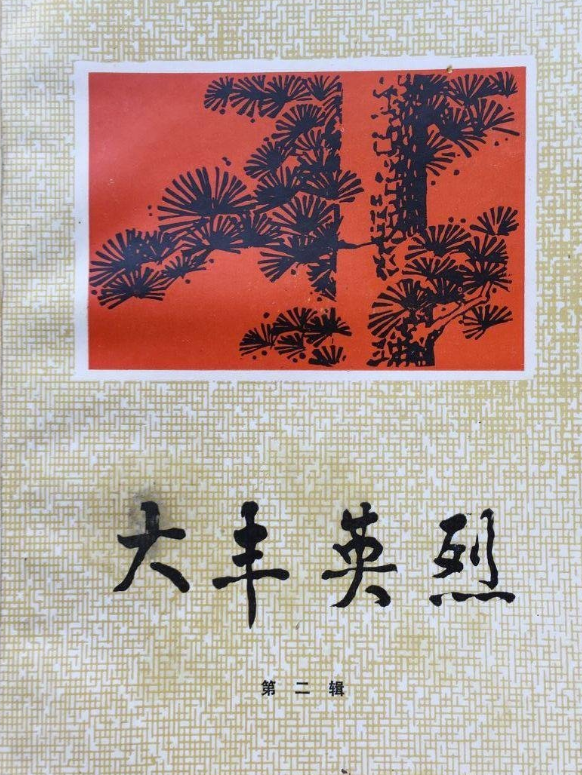 大丰英烈
第二辑